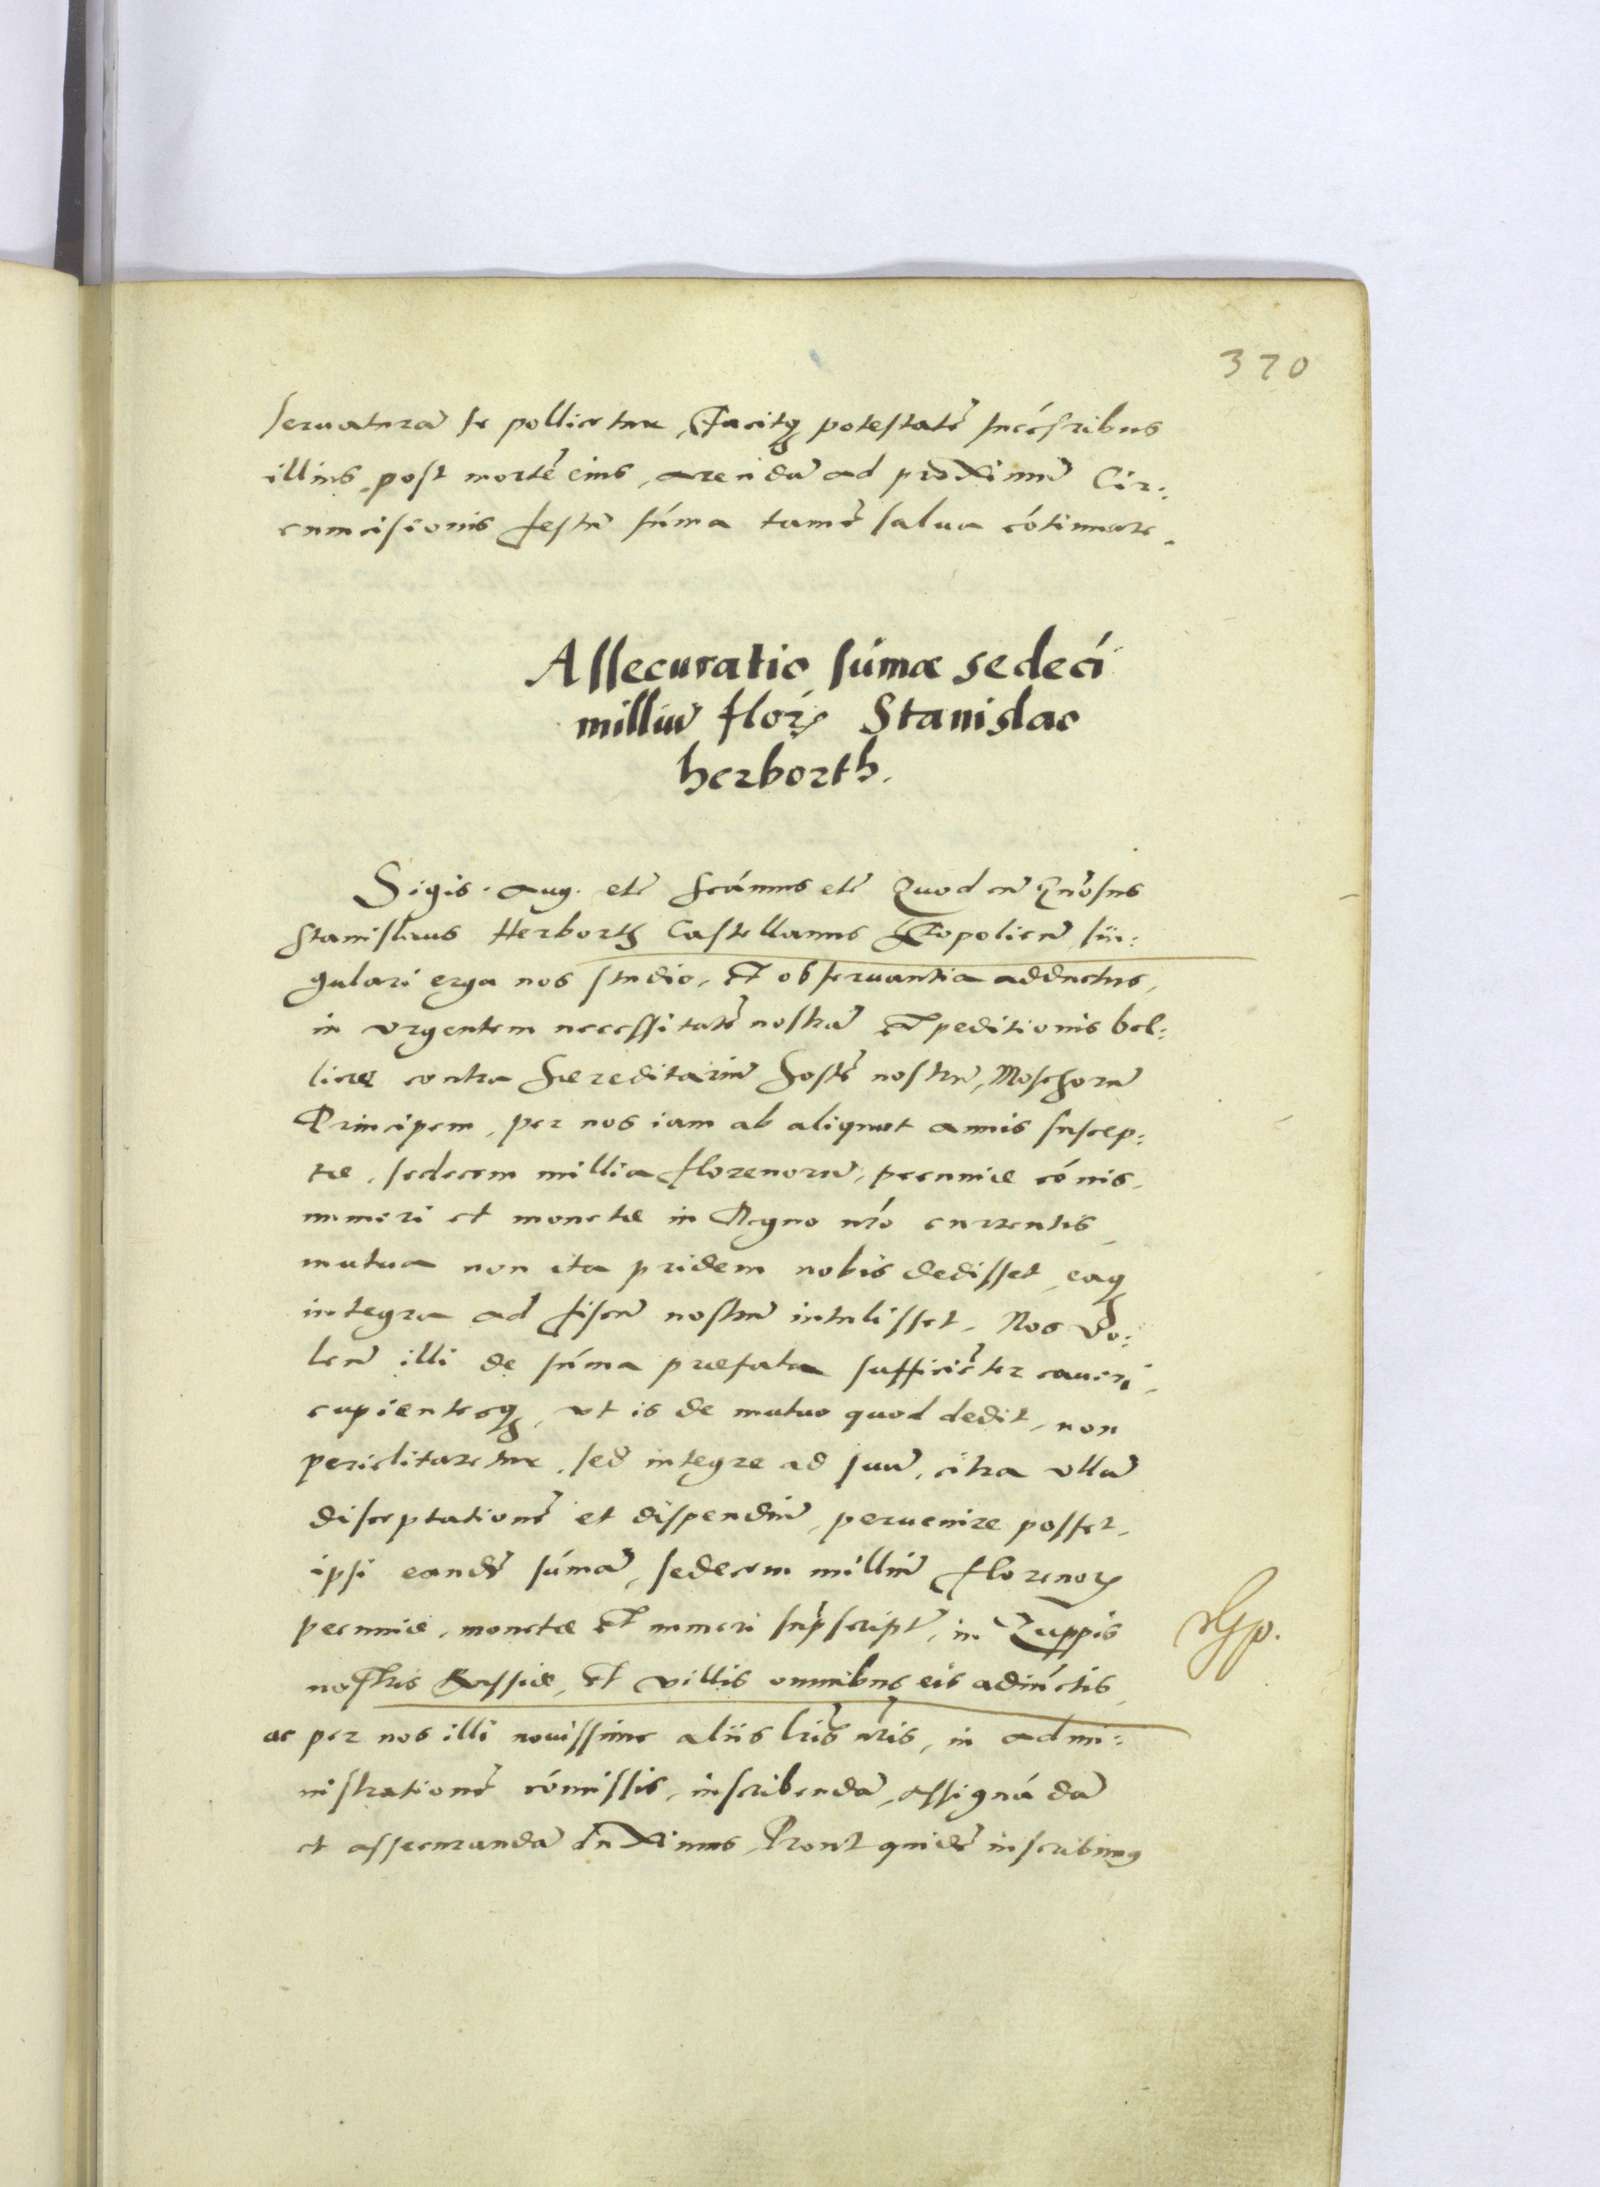 370
seruaturã se pollicetur, Facitq potestatẽ succẽsoribus
illius, post mortẽ eius, arendã ad proximũ Cir:
cumcisionis festũ sum̃a tamẽ salua cõtinuare.
Assecuratio sum̃æ sedecĩ
milliũ flor̃ Stanislao
herborth.
Sigis. Aug. etc̃ Scãmus etc̃ Quod cũ Gñosus
Stanislaus Herborth Castellanus Leopolien̄ sin:
gulari erga nos studio, et obseruantia adductus,
in vrgentem necessitatẽ nostrã expeditionis bel:
licæ contra hæreditariũ hostẽ nostrũ, Moschorũ
Principem, per nos iam ab aliquot annis suscep:
tæ, sedecem millia florenorũ, pecuniæ cõnis,
numeri et monetæ in Regno nr̃o currentis,
mutua non ita pridem nobis dedisset, eaq
integra ad fiscũ nostrũ intulisset, Nos Vo:
len̄ illi de sum̃a præfata sufficiẽter caueri,
cupientesq, vt is de mutuo quod dedit, non
periclitaretur, sed integre ad suũ, citra vllã
disceptationẽ et dispendiũ, peruenire posset,
ipsi eandẽ sum̃ã, sedecem milliũ florenor̃
pecuniæ, monetæ et numeri sup̃script̃, in Zuppis
nostris Russiæ, et villis omnibus eis adiũctis,
ac per nos illi nouissime aliis lr̃is nr̃is, in admi:
nistrationẽ cõmissis, inscribendã, assignãdã
et assecurandã duximus, Prout quidẽ inscribimus